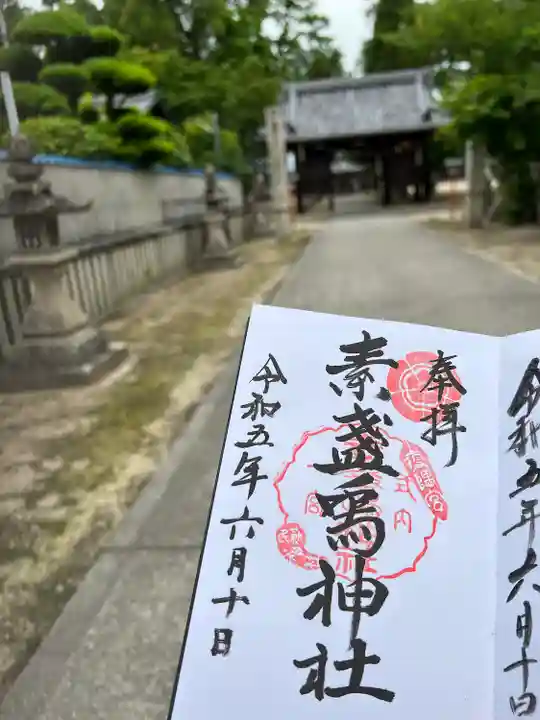 令和五年六月十日
奉拝
素盞嗚神社
令和五年六月十日
式内